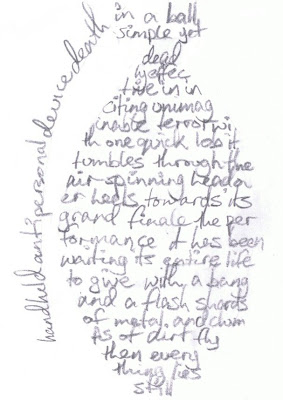 handheld antipersonal device death
in a ball
simple yet
dead
ly effec
tive in in
citing unimag
inable terror wi
th one quick lob it
tumbles through the
air spinning head o
er heels towards its
grand finale the per
formance it has been
waiting its entire life
to give with a bang
and a flash shards
of metal and chun
ks of dirt fly
then every
thing lies
still